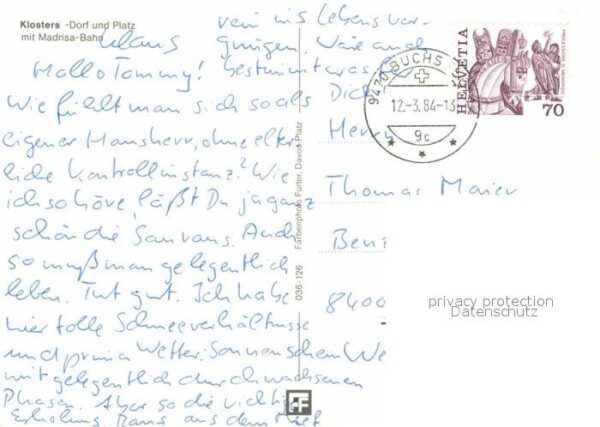 Klosters -Dorf und Platz
mit Madrisa-Bahn
Hallo Tommy!
Wie fühlt man sich so als
eigener Hausherr, ohne elter
liche Kontrollinstanz? Wie
ich so höre, läßt Du ja ganz
schön die Sau raus. Auch
so muß man gelegentlich
leben. Tut gut. Ich habe
hier tolle Schneeverhältnisse
und prima Wetter: Sonnenschein
mit gelegentlich durchwachsenen
Phasen. Aber so die richtige
Erholung. Raus aus dem
rein ins Lebensver-
gnügen. Wäre auch
bestimmt was für
Dich
Klaus
Farbenphoto Furter, Davos Platz
036-126
F
9470 BUCHS
12.-3.84-13
9c
HELVETIA
70
Herrn
Thomas Maier
8400
privacy protection
Datenschutz